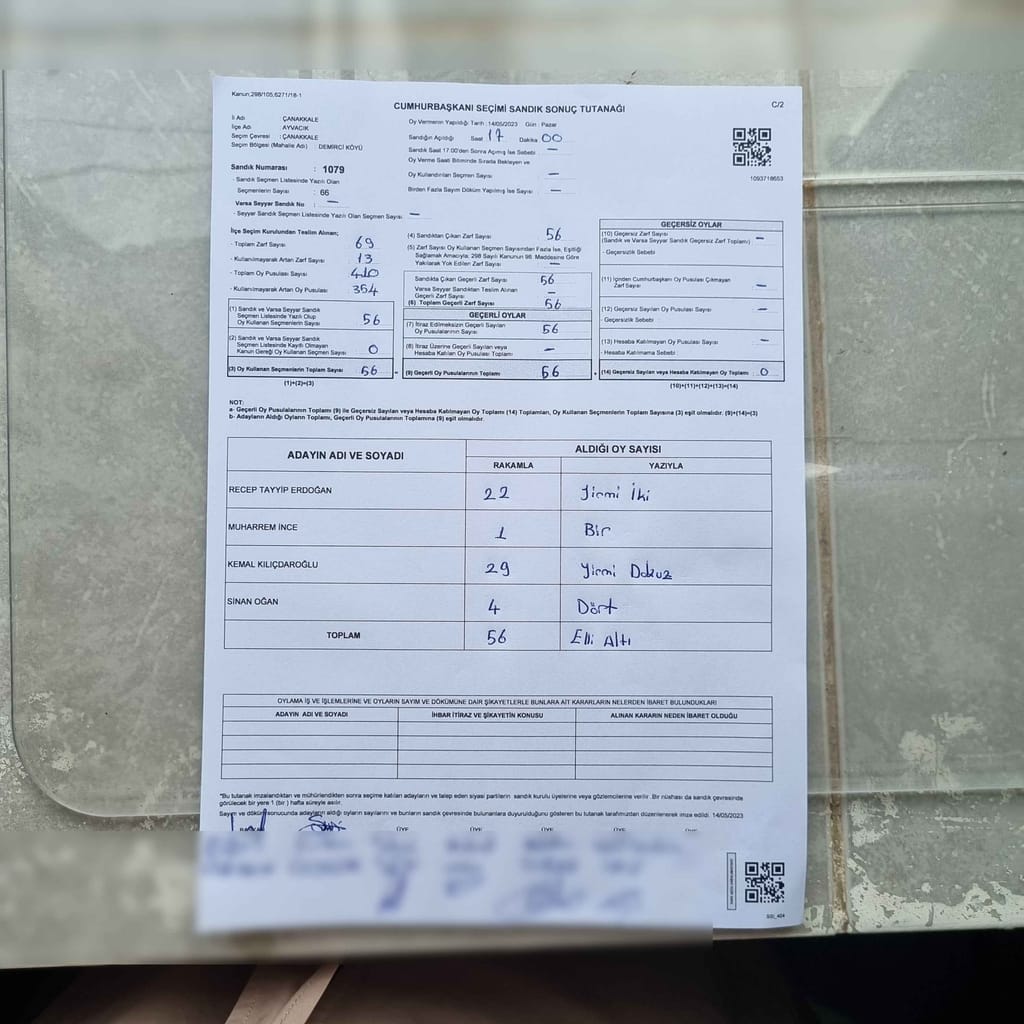 Kanun;298/105,6271/18-1
C/2
CUMHURBAŞKANI SEÇİMİ SANDIK SONUÇ TUTANAĞI
İl Adı ÇANAKKALE
İlçe Adı AYVACIK
Seçim Çevresi : ÇANAKKALE
Seçim Bölgesi (Mahalle Adı) : DEMİRCİ KÖYÜ
Sandık Numarası : 1079
Sandık Seçmen Listesinde Yazılı Olan
Seçmenlerin Sayısı : 66
Varsa Seyyar Sandık No : —
- Seyyar Sandık Seçmen Listesinde Yazılı Olan Seçmen Sayısı : —
Oy Vermenin Yapıldığı Tarih :14/05/2023 Gün : Pazar
Sandığın Açıldığı Saat 17 Dakika 00
Sandık Saat 17.00'den Sonra Açılmış İse Sebebi —
Oy Verme Saati Bitiminde Sırada Bekleyen ve
Oy Kullandırılan Seçmen Sayısı —
Birden Fazla Sayım Döküm Yapılmış İse Sayısı —
1093718653
İlçe Seçim Kurulundan Teslim Alınan;
- Toplam Zarf Sayısı 69
- Kullanılmayarak Artan Zarf Sayısı 13
- Toplam Oy Pusulası Sayısı 410
- Kullanılmayarak Artan Oy Pusulası 354
(1) Sandık ve Varsa Seyyar Sandık
Seçmen Listesinde Yazılı Olup
Oy Kullanan Seçmenlerin Sayısı 56
(2) Sandık ve Varsa Seyyar Sandık
Seçmen Listesinde Kayıtlı Olmayan
Kanun Gereği Oy Kullanan Seçmen Sayısı 0
(3) Oy Kullanan Seçmenlerin Toplam Sayısı 56
(1)+(2)=(3)
(4) Sandıktan Çıkan Zarf Sayısı 56
(5) Zarf Sayısı Oy Kullanan Seçmen Sayısından Fazla İse, Eşitliği
Sağlamak Amacıyla; 298 Sayılı Kanunun 98. Maddesine Göre
Yakılarak Yok Edilen Zarf Sayısı —
Sandıkta Çıkan Geçerli Zarf Sayısı 56
Varsa Seyyar Sandıktan Teslim Alınan
Geçerli Zarf Sayısı —
(6) Toplam Geçerli Zarf Sayısı 56
GEÇERLİ OYLAR
(7) İtiraz Edilmeksizin Geçerli Sayılan
Oy Pusulalarının Sayısı 56
(8) İtiraz Üzerine Geçerli Sayılan veya
Hesaba Katılan Oy Pusulası Toplamı —
(9) Geçerli Oy Pusulalarının Toplamı 56
GEÇERSİZ OYLAR
(10) Geçersiz Zarf Sayısı
(Sandık ve Varsa Seyyar Sandık Geçersiz Zarf Toplamı) —
- Geçersizlik Sebebi
(11) İçinden Cumhurbaşkanı Oy Pusulası Çıkmayan
Zarf Sayısı —
(12) Geçersiz Sayılan Oy Pusulası Sayısı —
- Geçersizlik Sebebi
(13) Hesaba Katılmayan Oy Pusulası Sayısı —
- Hesaba Katılmama Sebebi
(14) Geçersiz Sayılan veya Hesaba Katılmayan Oy Toplamı 0
(10)+(11)+(12)+(13)=(14)
NOT:
a- Geçerli Oy Pusulalarının Toplamı (9) ile Geçersiz Sayılan veya Hesaba Katılmayan Oy Toplamı (14) Toplamları, Oy Kullanan Seçmenlerin Toplam Sayısına (3) eşit olmalıdır. (9)+(14)=(3)
b- Adayların Aldığı Oyların Toplamı, Geçerli Oy Pusulalarının Toplamına (9) eşit olmalıdır.
ADAYIN ADI VE SOYADI ALDIĞI OY SAYISI
RAKAMLA YAZIYLA
RECEP TAYYİP ERDOĞAN 22 Yirmi İki
MUHARREM İNCE 1 Bir
KEMAL KILIÇDAROĞLU 29 Yirmi Dokuz
SİNAN OĞAN 4 Dört
TOPLAM 56 Elli Altı
OYLAMA İŞ VE İŞLEMLERİNE VE OYLARIN SAYIM VE DÖKÜMÜNE DAİR ŞİKAYETLERLE BUNLARA AİT KARARLARIN NELERDEN İBARET BULUNDUKLARI
ADAYIN ADI VE SOYADI İHBAR İTİRAZ VE ŞİKAYETİN KONUSU ALINAN KARARIN NEDEN İBARET OLDUĞU
*Bu tutanak imzalandıktan ve mühürlendikten sonra seçime katılan adayların ve talep eden siyasi partilerin sandık kurulu üyelerine veya gözlemcilerine verilir. Bir nüshası da sandık çevresinde
görülecek bir yere 1 (bir ) hafta süreyle asılır.
Sayım ve döküm sonucunda adayların aldığı oyların sayılarını ve bunların sandık çevresinde bulunanlara duyurulduğunu gösteren bu tutanak tarafımızdan düzenlenerek imza edildi. 14/05/2023
ÜYE ÜYE ÜYE ÜYE ÜYE
SSI_404